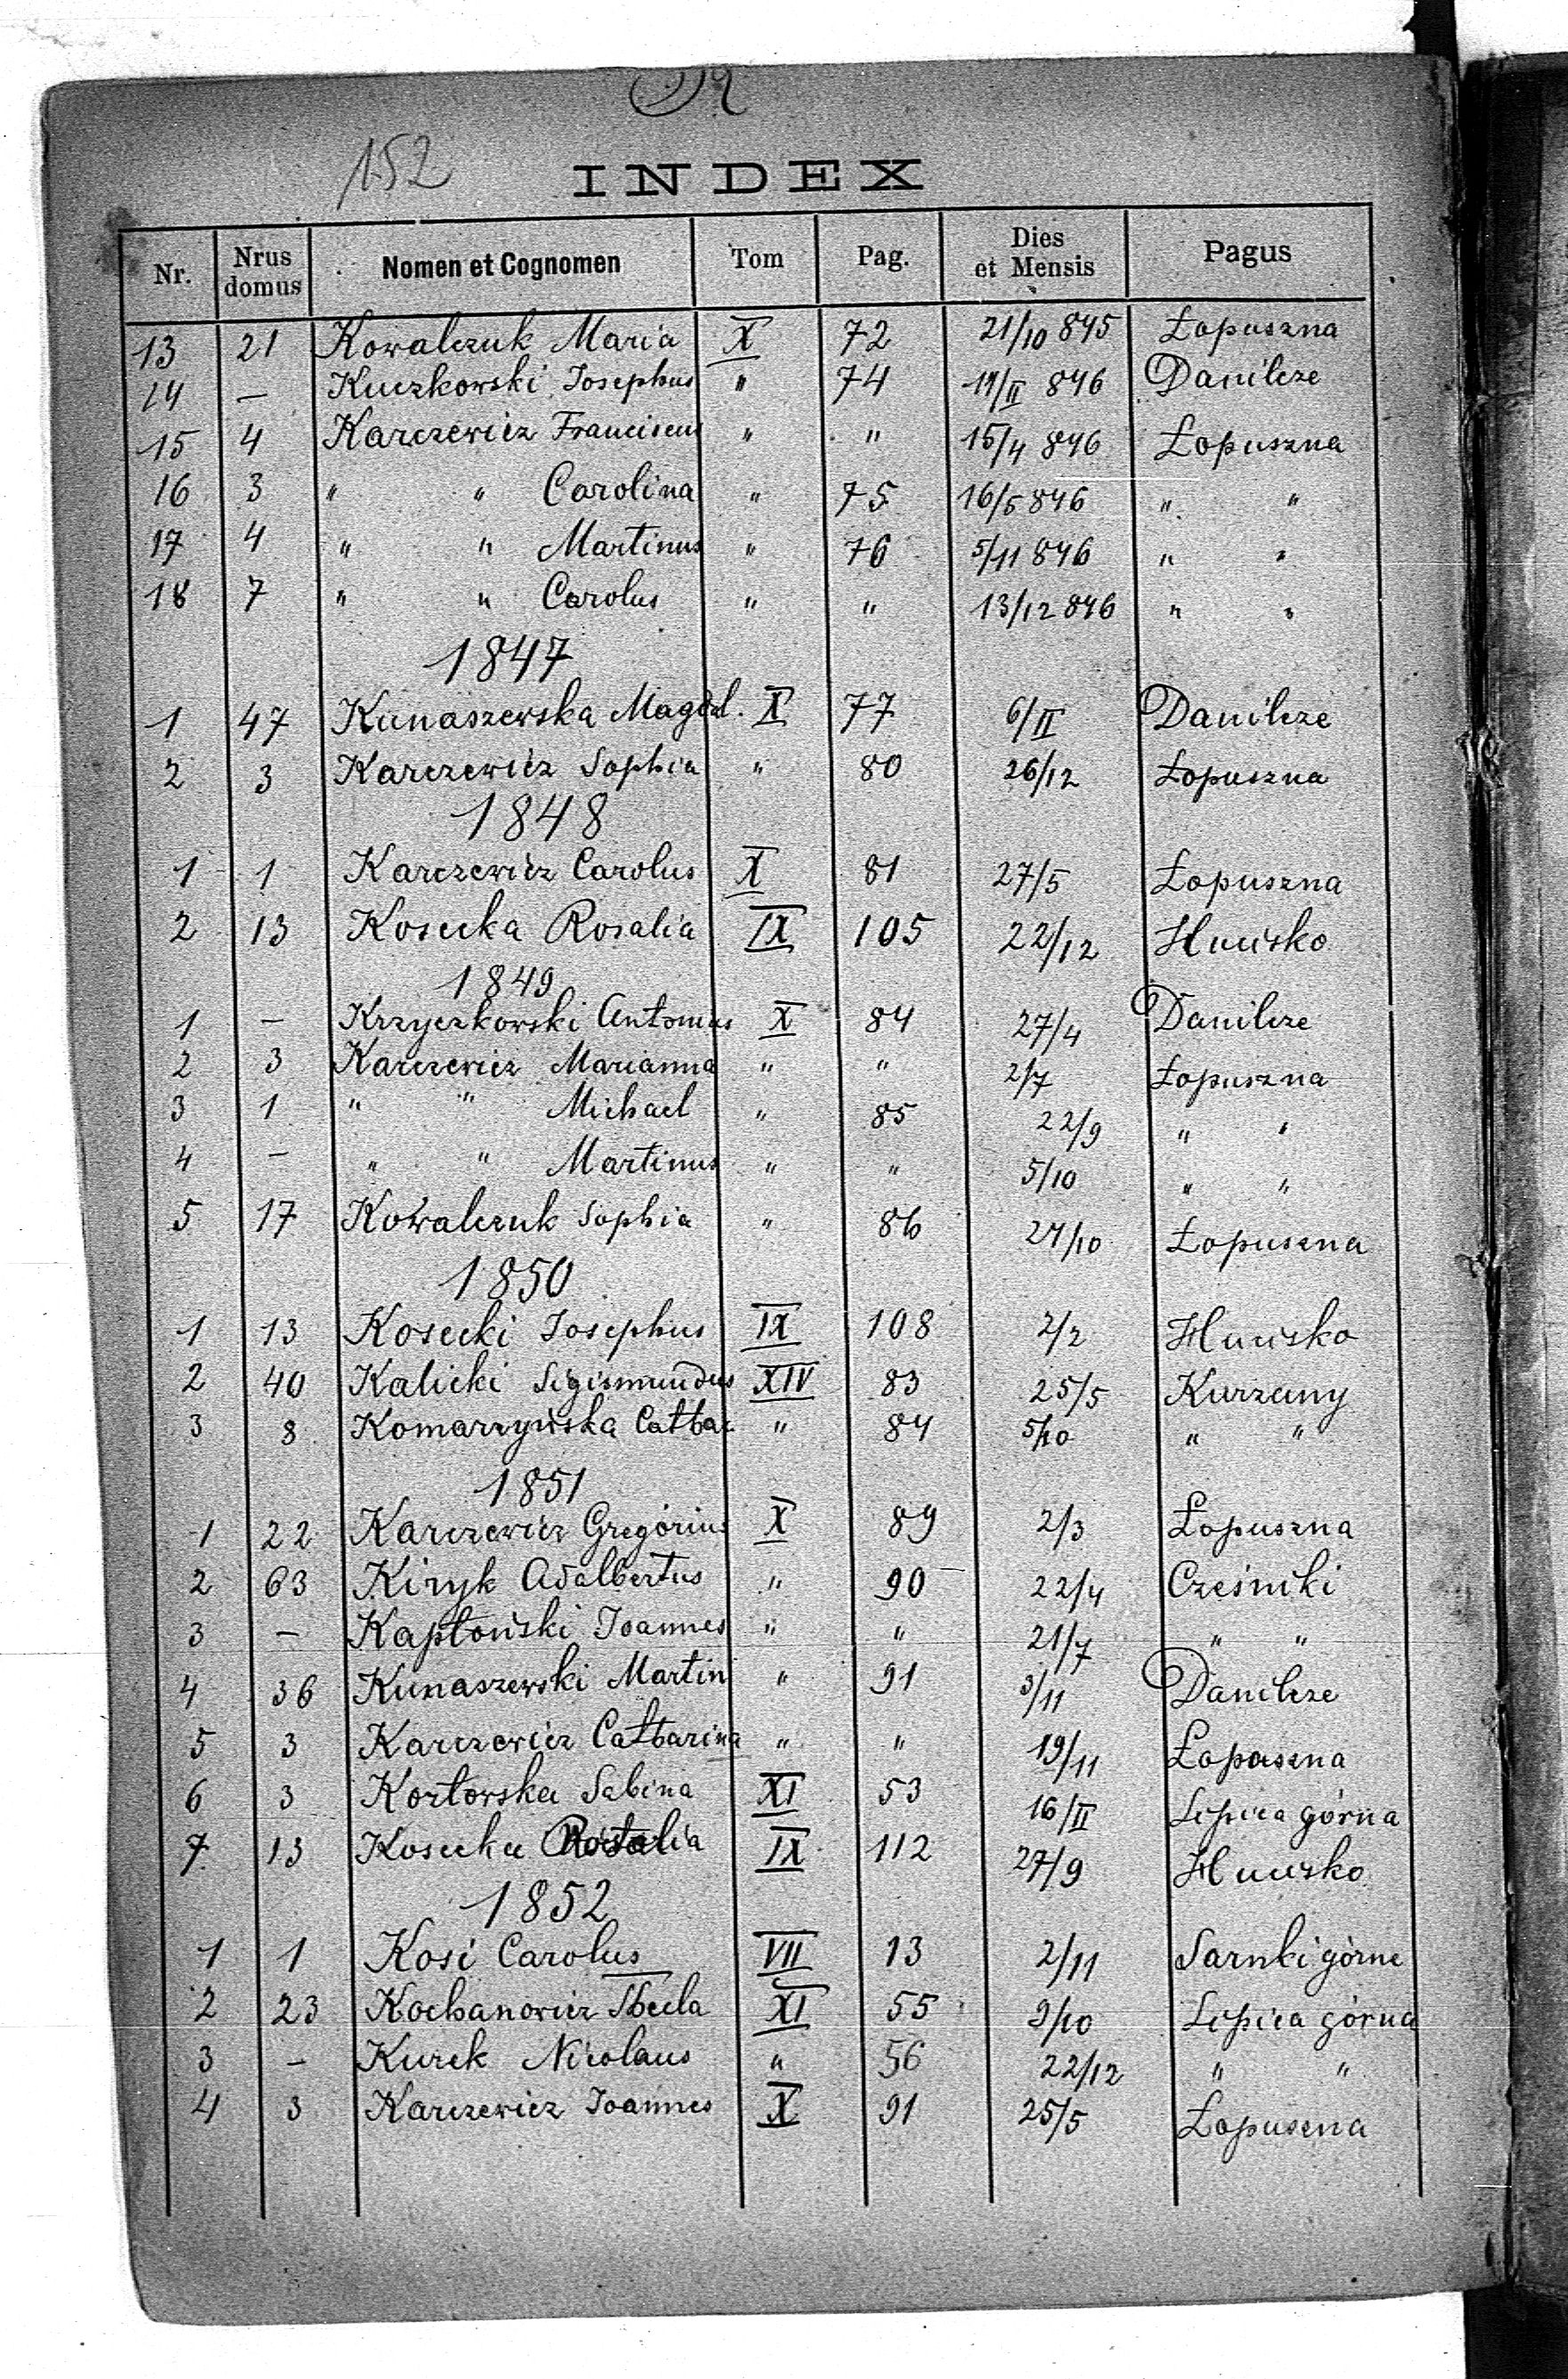 152
INDEX
Nr. Nrus domus Nomen et Cognomen Tom Pag. Dies et Mensis Pagus
13 21 Kowalczuk Maria X 72 21/10 845 Łopuszna
14 — Kuczkowski Josephus " 74 19/II 846 Danilcze
15 4 Karczewicz Franciscus " " 15/4 846 Łopuszna
16 3 " " Carolina " 75 16/5 846 " "
17 4 " " Martinus " 76 5/11 846 " "
18 7 " " Carolus " " 13/12 846 " "
1847
1 47 Kunaszewska Magdal. X 77 6/II Danilcze
2 3 Karczewicz Sophia " 80 26/12 Łopuszna
1848
1 1 Karczewicz Carolus X 81 27/5 Łopuszna
2 13 Kosecka Rosalia IX 105 22/12 Hucisko
1849
1 — Krzyczkowski Antonius X 84 27/4 Danilcze
2 3 Karczewicz Marianna " " 2/7 Łopuszna
3 1 " " Michael " 85 22/9 " "
4 — " " Martinus " " 5/10 " "
5 17 Kowalczuk Sophia " 86 27/10 Łopuszna
1850
1 13 Kosecki Josephus IX 108 2/2 Hucisko
2 40 Kalicki Sigismundus XIV 83 25/5 Kurzany
3 8 Komarzyńska Cathar. " 84 5/10 " "
1851
1 22 Karczewicz Gregorius X 89 2/3 Łopuszna
2 63 Kiryk Adalbertus " 90 22/4 Cześniki
3 — Kapłoński Joannes " " 21/7 " "
4 36 Kunaszewski Martin " 91 3/11 Danilcze
5 3 Karczewicz Catharina " " 19/11 Łopuszna
6 3 Kozłowska Sabina XI 53 16/II Lipica górna
7 13 Kosecka Rosalia IX 112 27/9 Hucisko
1852
1 1 Kosi Carolus VII 13 2/11 Sarnki górne
2 23 Kochanowicz Thecla XI 55 9/10 Lipica górna
3 — Kurek Nicolaus " 56 22/12 " "
4 3 Karczewicz Joannes X 91 25/5 Łopuszna